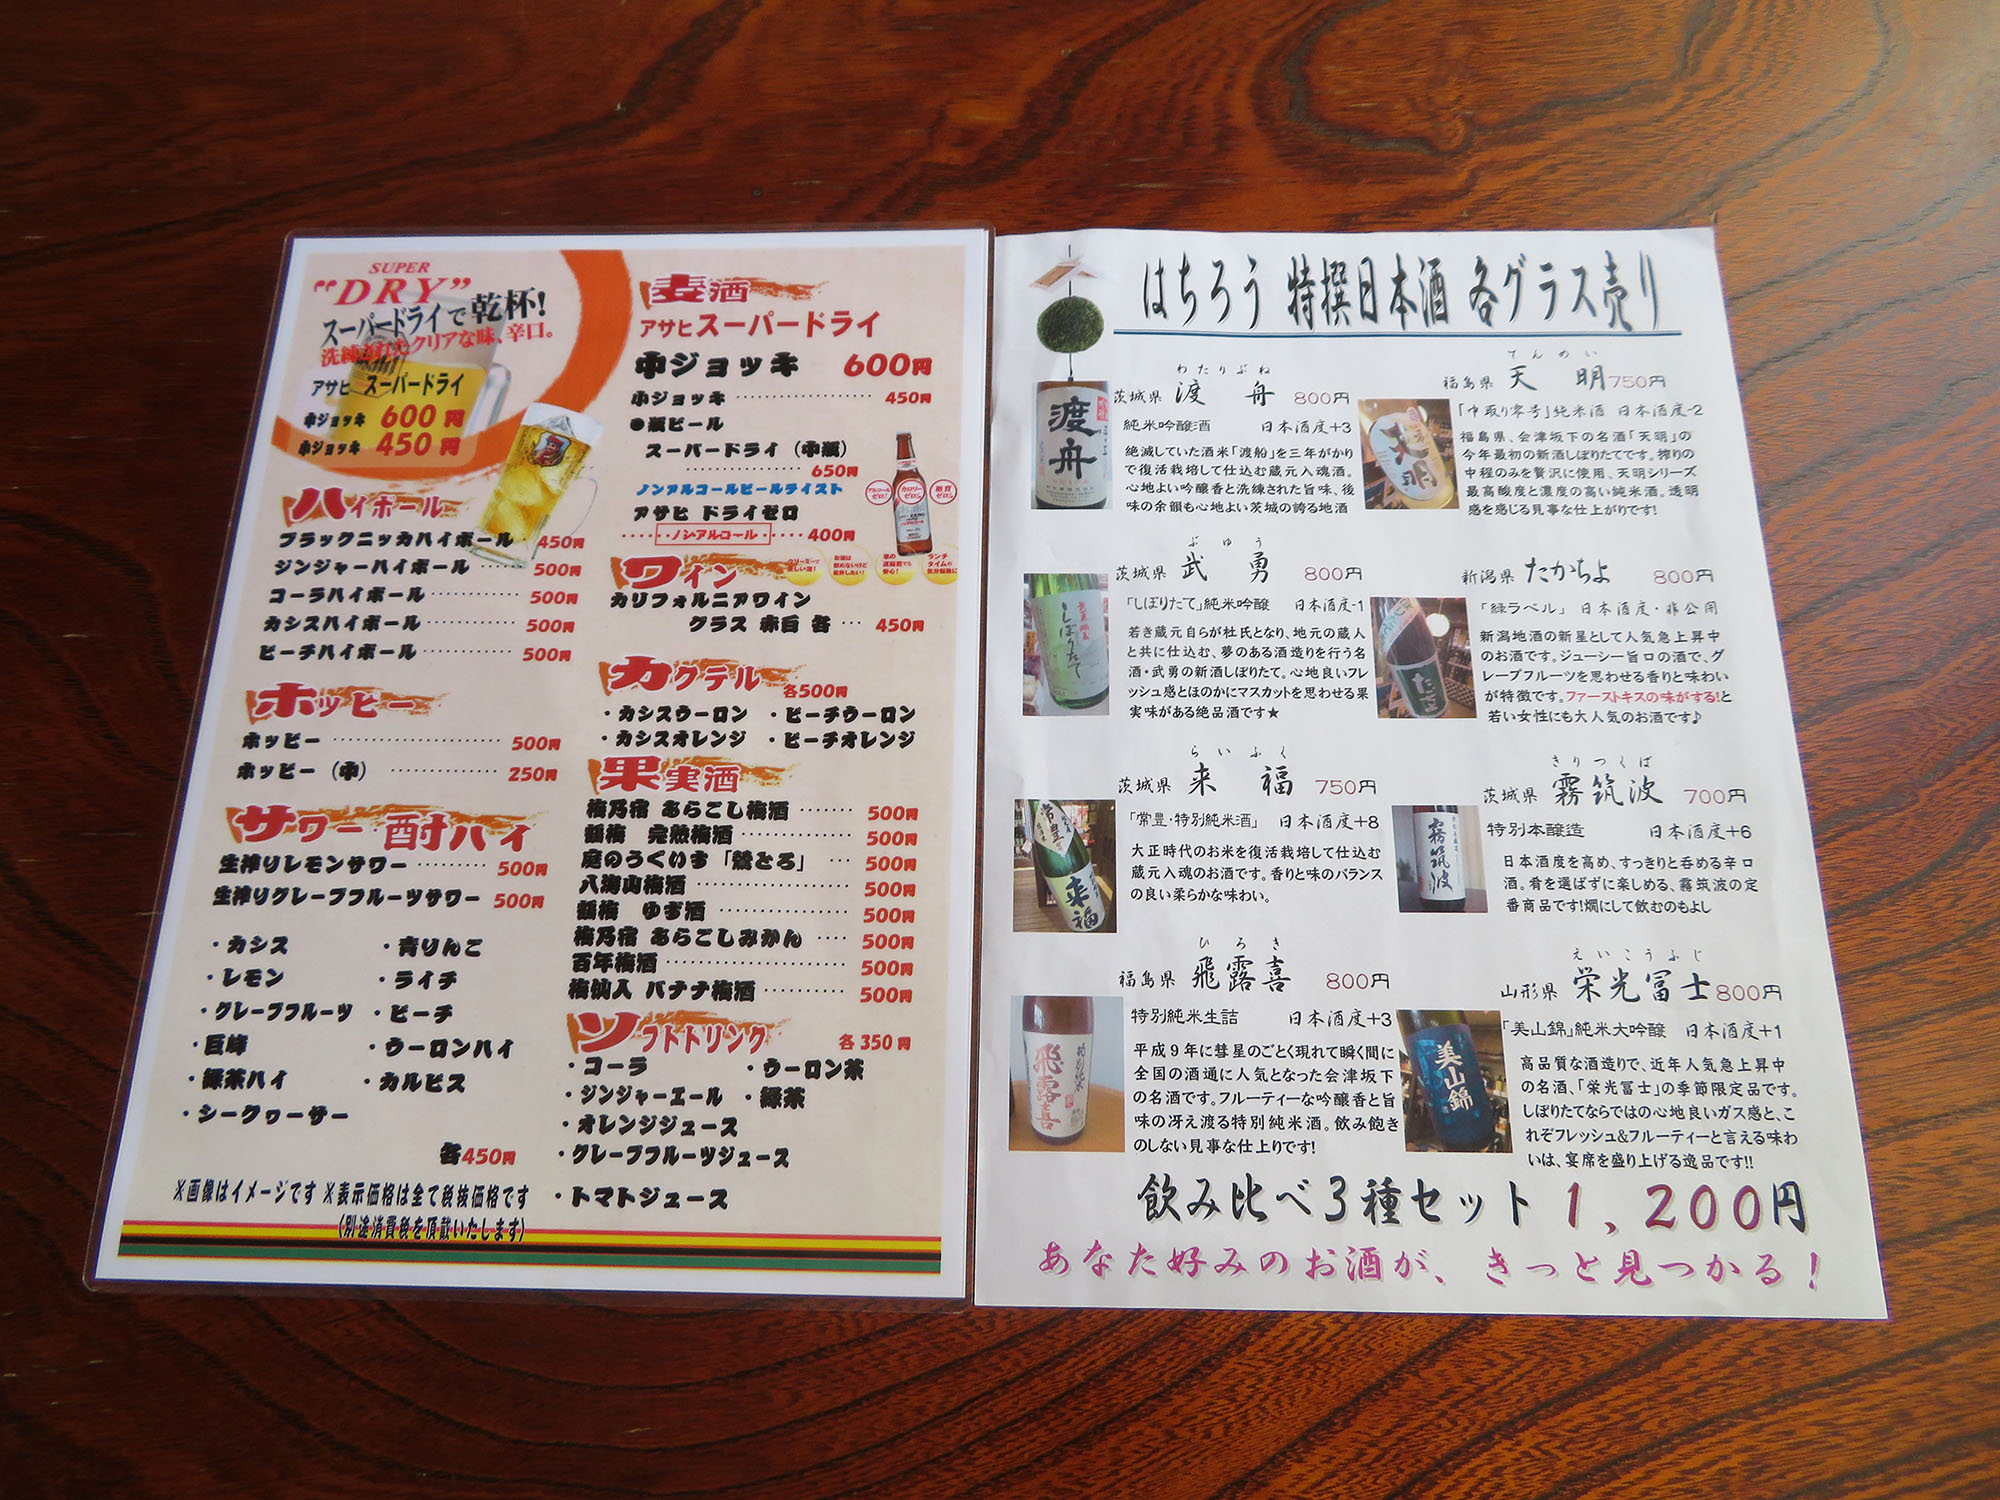 SUPER
"DRY"
スーパードライで乾杯!
洗練されたクリアな味、辛口。
アサヒ スーパードライ
中ジョッキ 600円
小ジョッキ 450円
ハイボール
ブラックニッカハイボール 450円
ジンジャーハイボール 500円
コーラハイボール 500円
カシスハイボール 500円
ピーチハイボール 500円
ホッピー
ホッピー 500円
ホッピー(中) 250円
サワー・酎ハイ
生搾りレモンサワー 500円
生搾りグレープフルーツサワー 500円
・カシス ・青りんご
・レモン ・ライチ
・グレープフルーツ ・ピーチ
・巨峰 ・ウーロンハイ
・緑茶ハイ ・カルピス
・シークヮーサー
各450円
※画像はイメージです ※表示価格は全て税抜価格です
(別途消費税を頂戴いたします)
麦酒
アサヒスーパードライ
中ジョッキ 600円
小ジョッキ 450円
●瓶ビール
スーパードライ(中瓶)
650円
ノンアルコールビールテイスト
アサヒ ドライゼロ
ノンアルコール 400円
ワイン
カリフォルニアワイン
グラス 赤白 各 450円
カクテル 各500円
・カシスウーロン ・ピーチウーロン
・カシスオレンジ ・ピーチオレンジ
果実酒
梅乃宿 あらごし梅酒 500円
鶴梅 完熟梅酒 500円
庭のうぐいす「鶯とろ」 500円
八海山梅酒 500円
鶴梅 ゆず酒 500円
梅乃宿 あらごしみかん 500円
百年梅酒 500円
梅仙人 バナナ梅酒 500円
ソフトドリンク 各350円
・コーラ ・ウーロン茶
・ジンジャーエール ・緑茶
・オレンジジュース
・グレープフルーツジュース
・トマトジュース
はちろう 特撰日本酒 各グラス売り
わたりぶね
茨城県 渡舟 800円
純米吟醸酒 日本酒度+3
絶滅していた酒米「渡船」を三年がかり
で復活栽培して仕込む蔵元入魂酒。
心地よい吟醸香と洗練された旨味、後
味の余韻も心地よい茨城の誇る地酒
渡舟
てんめい
福島県 天明 750円
「中取り零号」純米酒 日本酒度-2
福島県、会津坂下の名酒「天明」の
今年最初の新酒しぼりたてです。搾りの
中程のみを贅沢に使用、天明シリーズ
最高酸度と濃度の高い純米酒。透明
感を感じる見事な仕上がりです!
天明
ぶゆう
茨城県 武勇 800円
「しぼりたて」純米吟醸 日本酒度-1
若き蔵元自らが杜氏となり、地元の蔵人
と共に仕込む、夢のある酒造りを行う名
酒・武勇の新酒しぼりたて。心地良いフレ
ッシュ感とほのかにマスカットを思わせる果
実味がある絶品酒です★
しぼりたて
新潟県 たかちよ 800円
「緑ラベル」 日本酒度・非公開
新潟地酒の新星として人気急上昇中
のお酒です。ジューシー旨口の酒で、グ
レープフルーツを思わせる香りと味わい
が特徴です。ファーストキスの味がする!と
若い女性にも大人気のお酒です♪
らいふく
茨城県 来福 750円
「常豊・特別純米酒」 日本酒度+8
大正時代のお米を復活栽培して仕込む
蔵元入魂のお酒です。香りと味のバランス
の良い柔らかな味わい。
常豊
来福
きりつくば
茨城県 霧筑波 700円
特別本醸造 日本酒度+6
日本酒度を高め、すっきりと呑める辛口
酒。肴を選ばずに楽しめる、霧筑波の定
番商品です!燗にして飲むのもよし
霧筑波
ひろき
福島県 飛露喜 800円
特別純米生詰 日本酒度+3
平成9年に彗星のごとく現れて瞬く間に
全国の酒通に人気となった会津坂下
の名酒です。フルーティーな吟醸香と旨
味の冴え渡る特別純米酒。飲み飽き
のしない見事な仕上りです!
特別純米
飛露喜
えいこうふじ
山形県 栄光冨士 800円
「美山錦」純米大吟醸 日本酒度+1
高品質な酒造りで、近年人気急上昇中
の名酒、「栄光冨士」の季節限定品です。
しぼりたてならではの心地良いガス感と、こ
れぞフレッシュ&フルーティーと言える味わ
いは、宴席を盛り上げる逸品です!!
美山錦
飲み比べ3種セット 1,200円
あなた好みのお酒が、きっと見つかる!